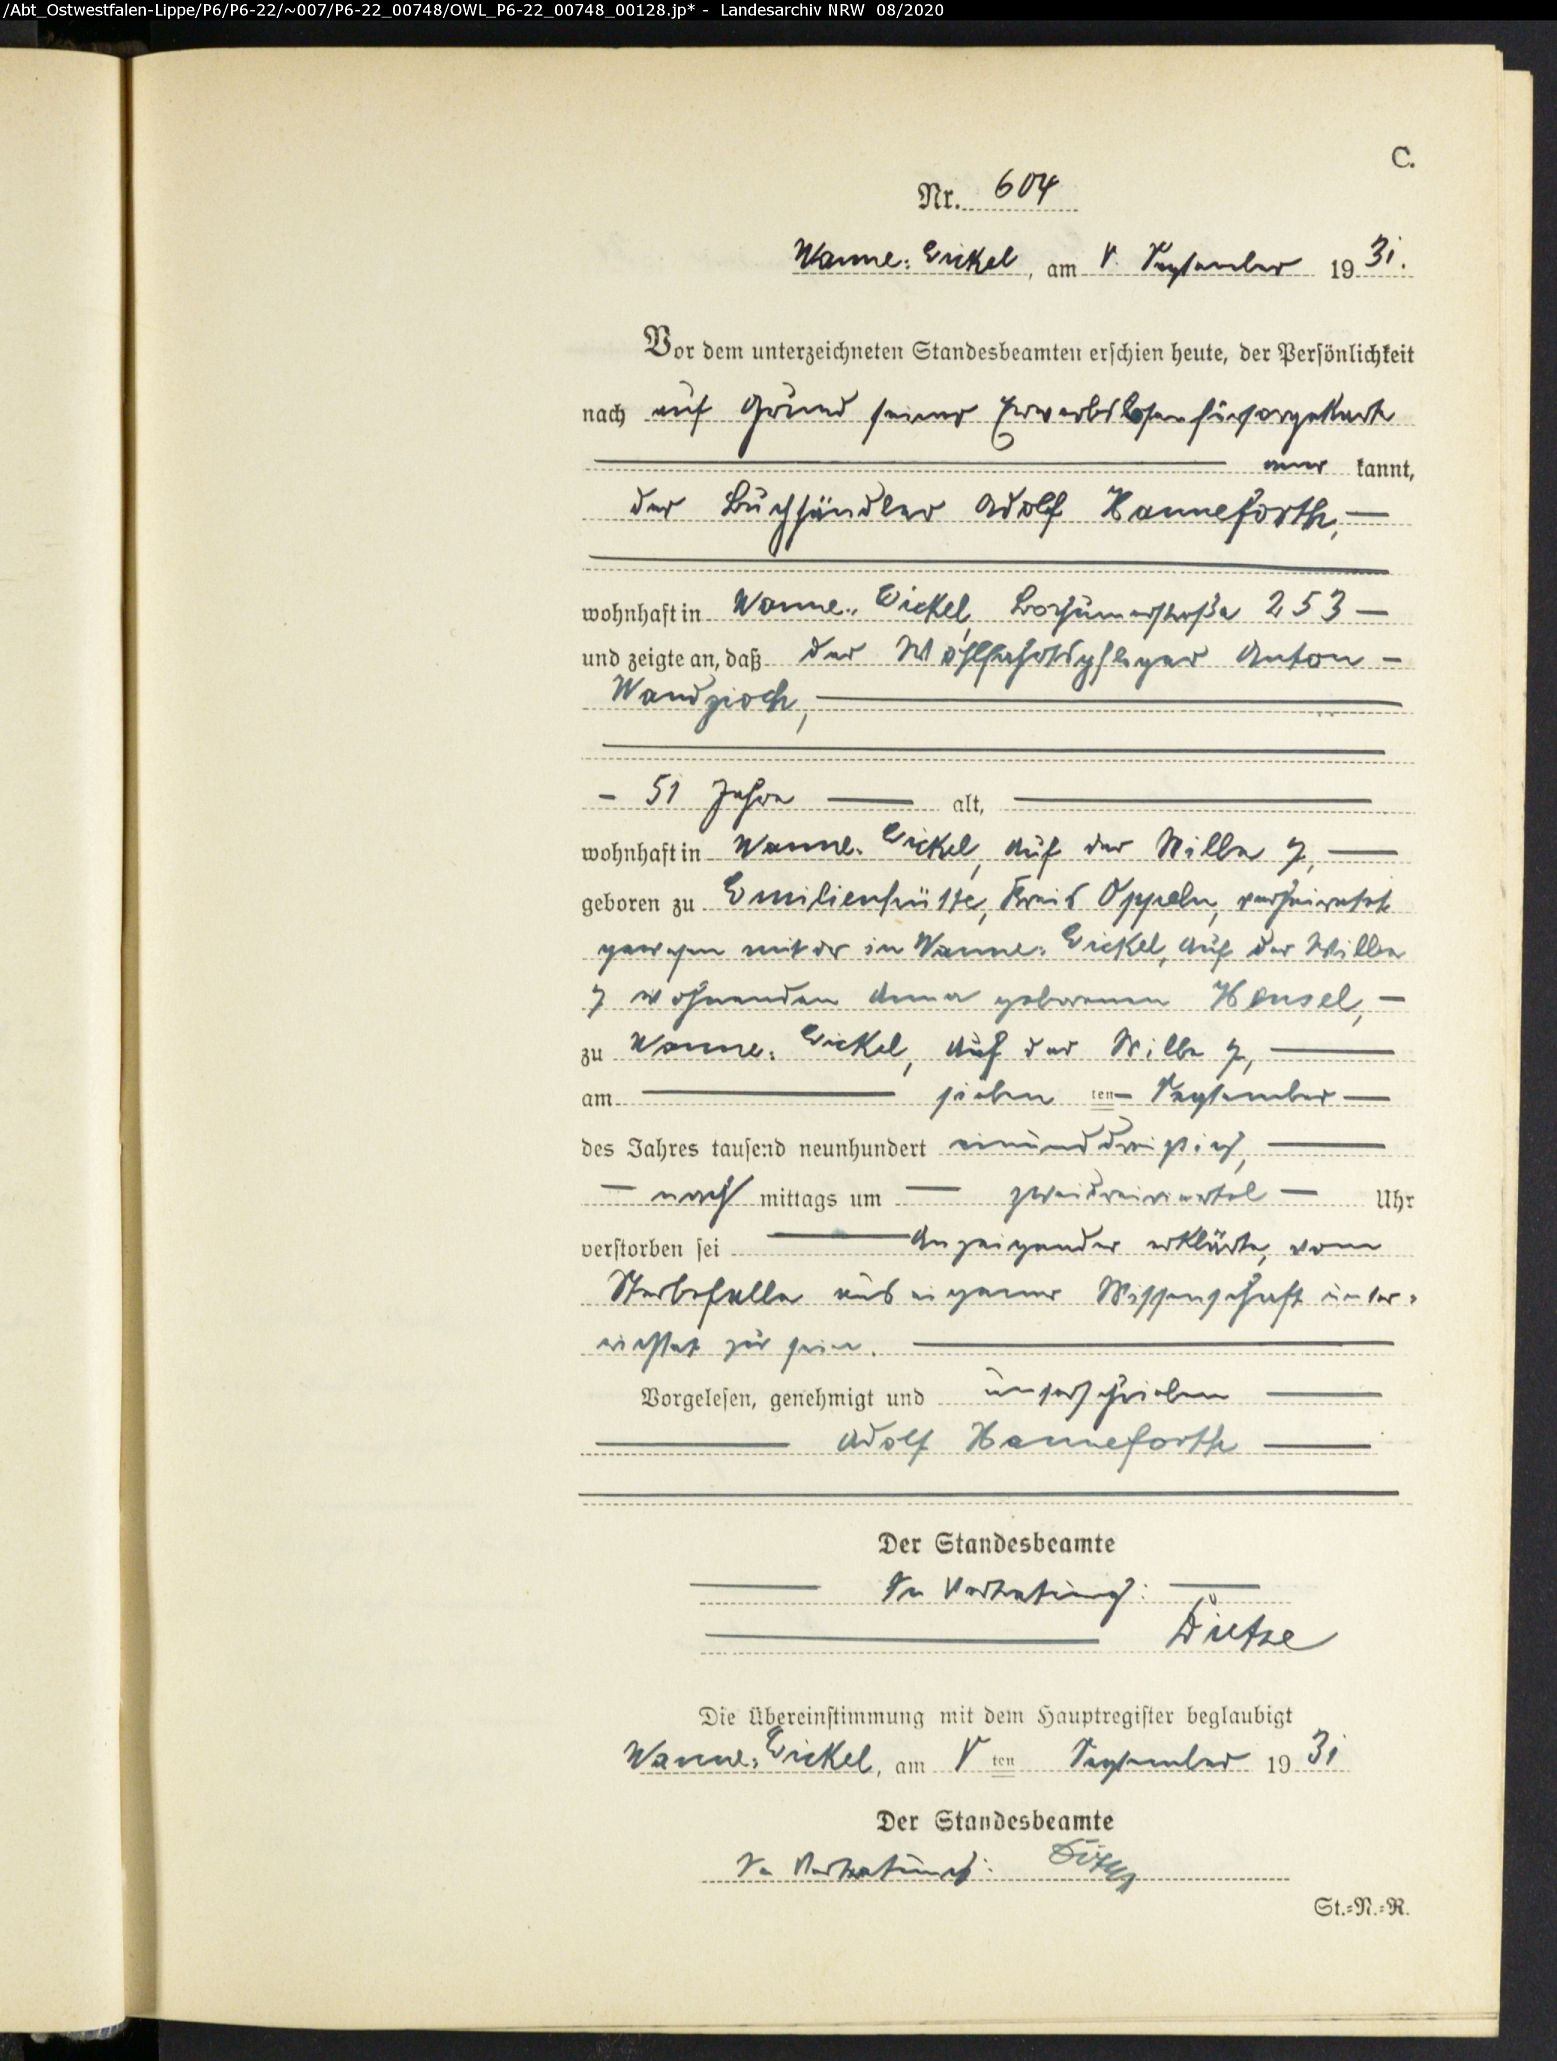 /Abt_Ostwestfalen-Lippe/P6/P6-22/~007/P6-22_00748/OWL_P6-22_00748_00128.jp* - Landesarchiv NRW 08/2020
C.
Nr. 604
Wanne-Eickel, am 8. September 1931.
Vor dem unterzeichneten Standesbeamten erschien heute, der Persönlichkeit
nach auf Grund seiner Erwerbslosenfürsorgekarte
aner kannt,
der Buchhändler Adolf Hanneforth,
wohnhaft in Wanne-Eickel, Bochumerstraße 253
und zeigte an, daß der Wohlfahrtspfleger Anton
Wandzioch,
51 Jahre alt,
wohnhaft in Wanne-Eickel, Auf der Wilbe 7,
geboren zu Emilienhütte, Kreis Oppeln, verheiratet
gewesen mit der in Wanne-Eickel, Auf der Wilbe
7 wohnenden Anna geborenen Hensel,
zu Wanne-Eickel, Auf der Wilbe 7,
am sieben ten September
des Jahres tausend neunhundert einunddreißig,
nach mittags um zweidreiviertel Uhr
verstorben sei Anzeigender erklärte, vom
Sterbefalle aus eigener Wissenschaft unter-
richtet zu sein.
Vorgelesen, genehmigt und unterschrieben
Adolf Hanneforth
Der Standesbeamte
In Vertretung:
Die Übereinstimmung mit dem Hauptregister beglaubigt
Wanne-Eickel, am 8 ten September 1931
Der Standesbeamte
In Vertretung:
St.-N.-R.